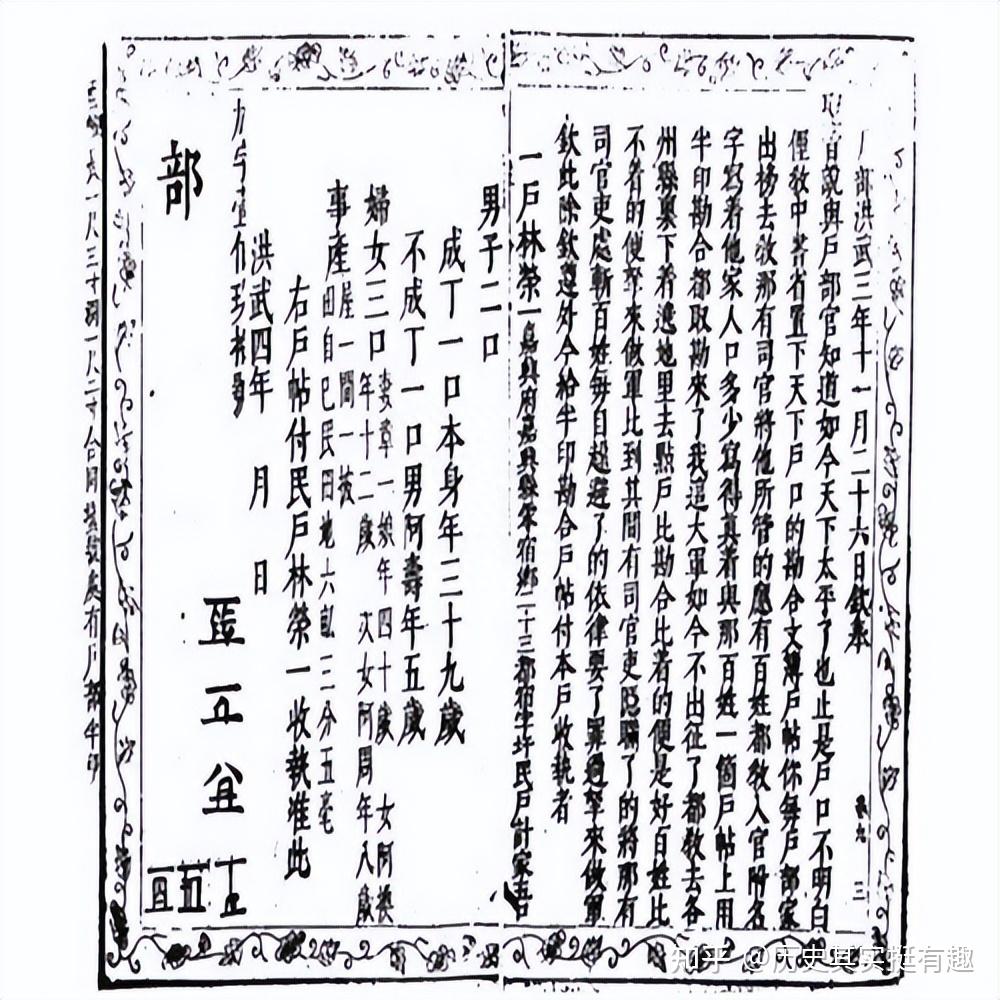 部洪武三年十一月二十六日欽奉
聖旨說與戶部官知道如今天下太平了也止是戶口不明白
俚教中書省置下天下戶口的勘合文簿戶帖你每戶部家
出榜去教那有司官將他所管的應有百姓都教入官附名
字寫着他家人口多少寫得真着與那百姓一箇戶帖上用
半印勘合都取勘來了我這大軍如今不出征了都教去各
州縣裏下着遶地里去點戶比勘合比着的便是好百姓比
不着的便拏來做軍比到其間有司官吏隱瞞了的將那有
司官吏處斬百姓每自趓避了的依律要了罪過拏來做軍
欽此除欽遵外今給半印勘合戶帖付本戶收執者
一戶林榮一嘉興府嘉興縣零宿鄉二十三都宿字圩民戶計家五口
男子二口
成丁一口本身年三十九歲
不成丁一口男阿壽年五歲
婦女三口
妻章一娘年四十歲 女阿換
年十二歲 次女阿周年八歲
事產
屋一間一披
田自己民田地六畝三分五毫
右戶帖付民戶林榮一收執准此
洪武四年 月 日
部
知乎 @历史其实挺有趣